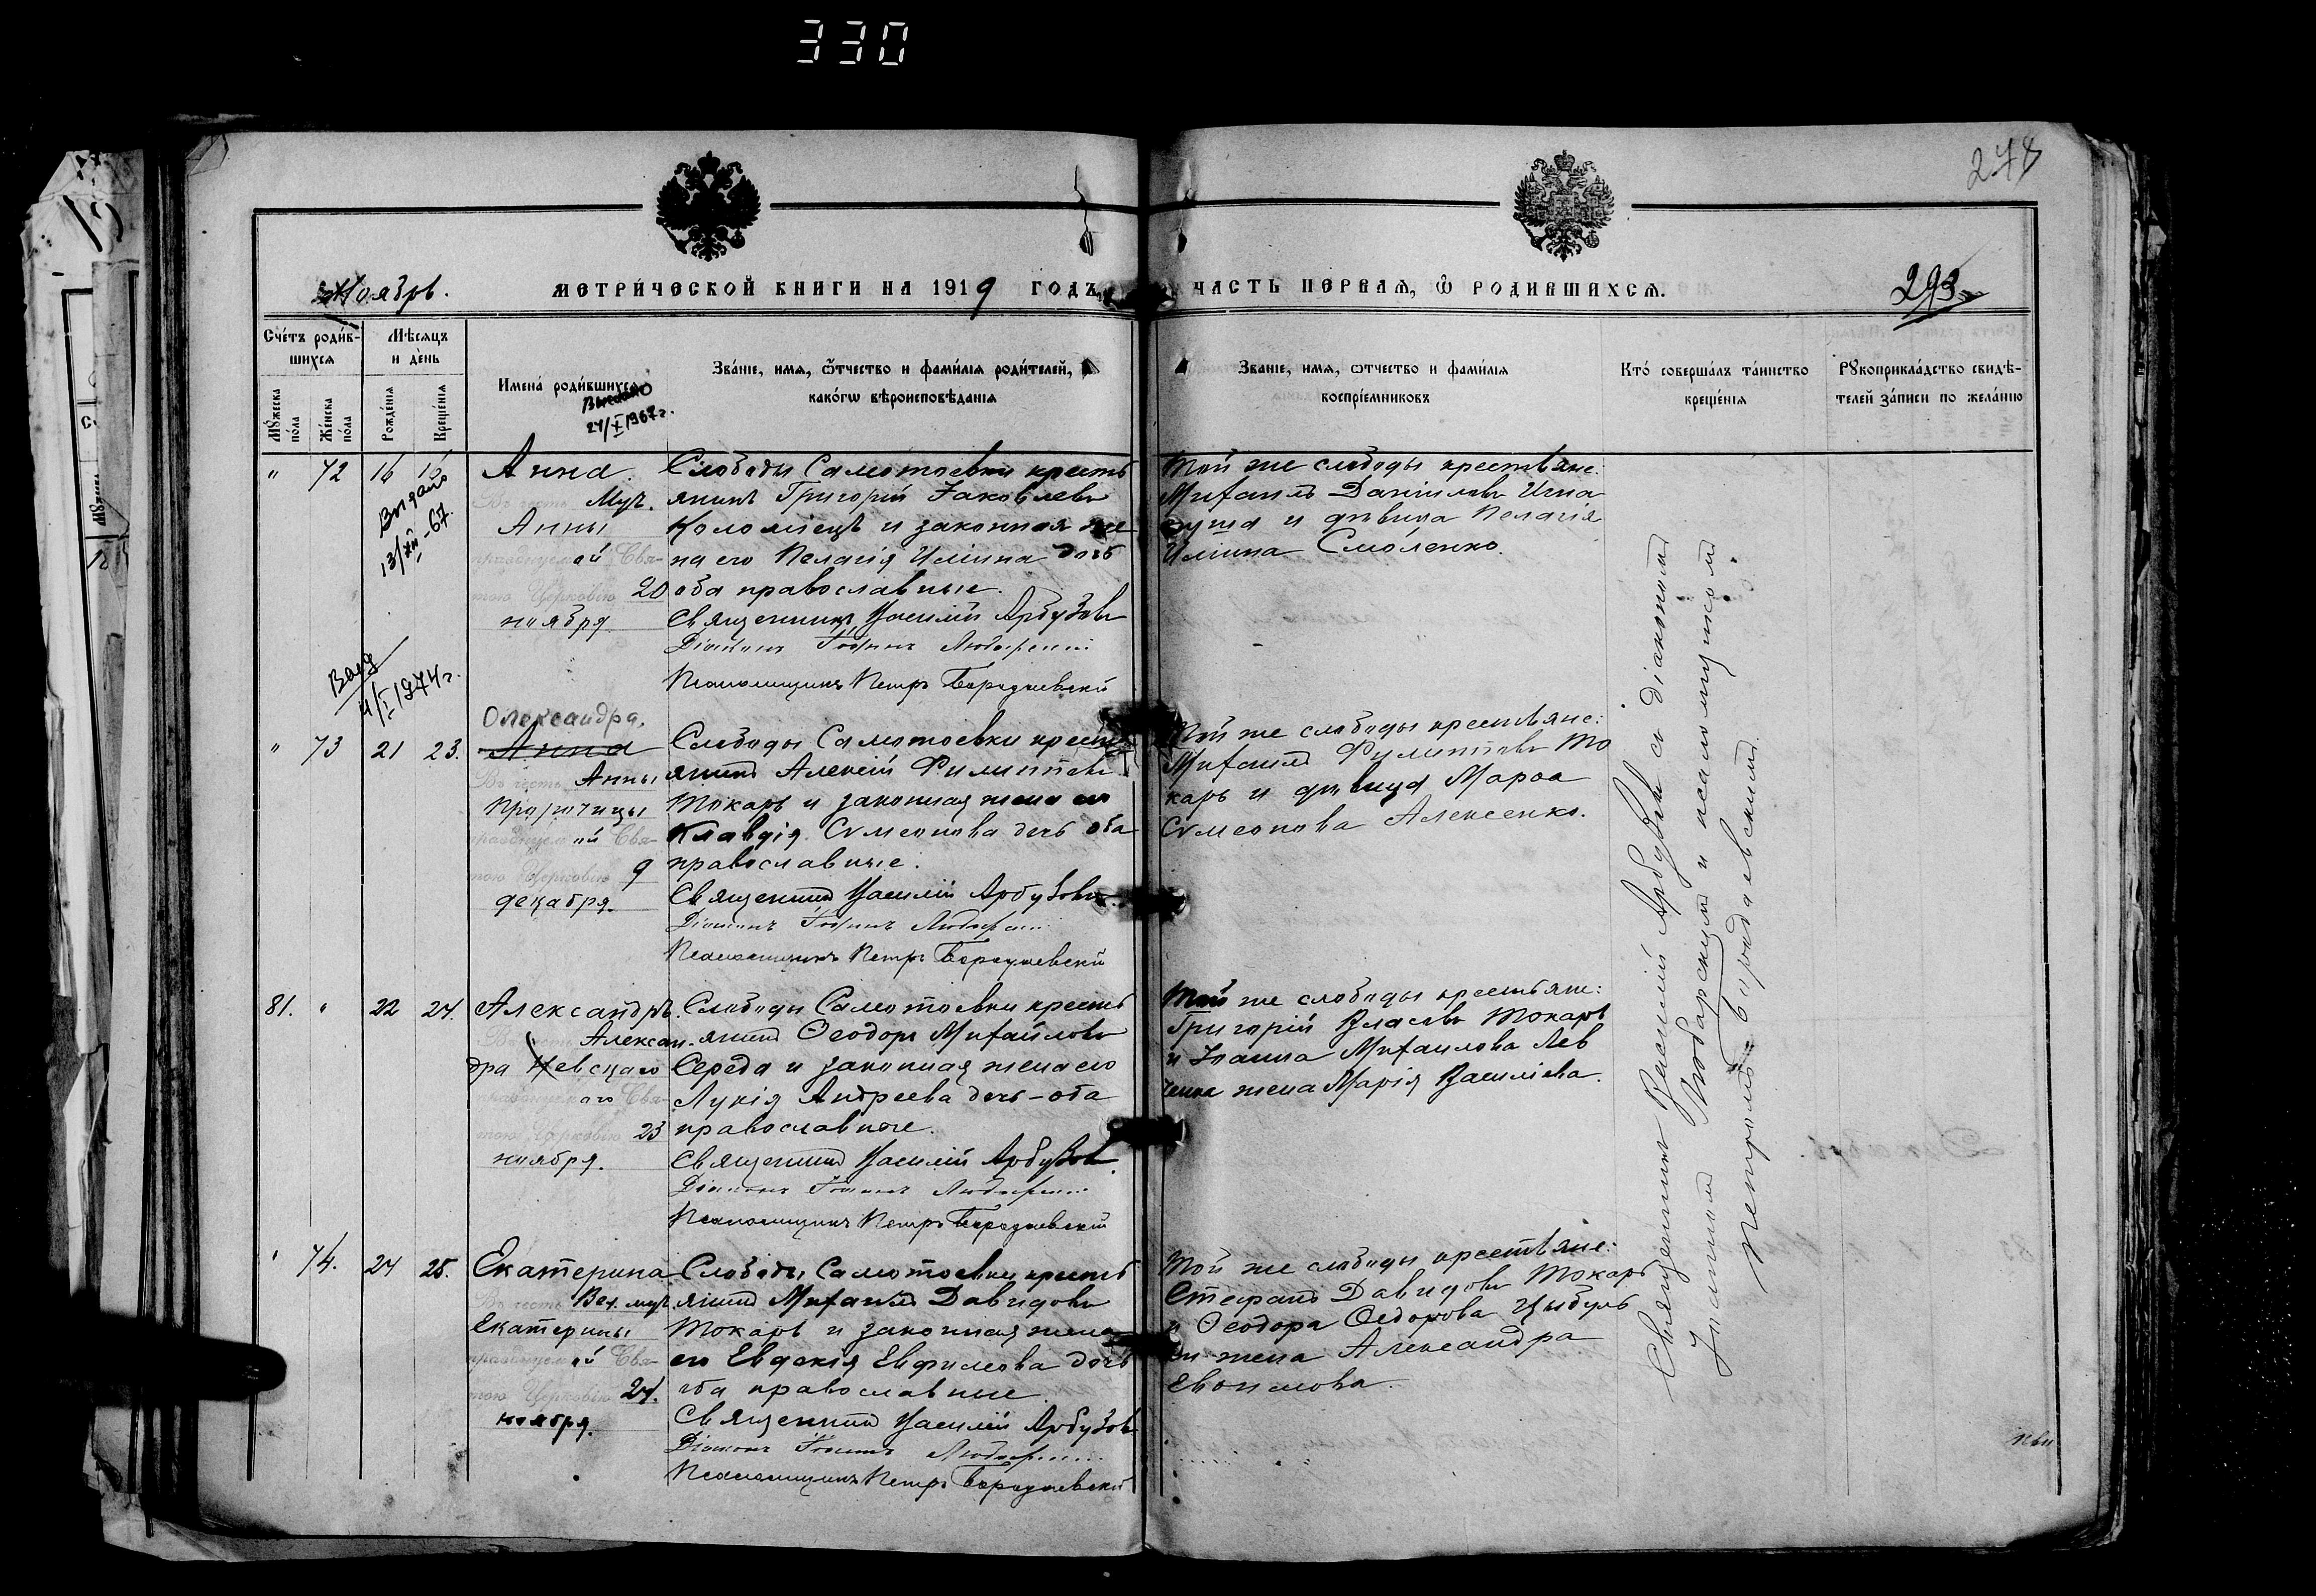 330
278
Ноябрь.
МЕТРИЧЕСКОЙ КНИГИ НА 1919 ГОДЪ,
ЧАСТЬ ПЕРВАЯ, Ѿ РОДИВШИХСЯ.
293
Счетъ родившихся
Мѣсяцъ и день
Мужеска пола
Женска пола
Рожденія
Крещенія
Имена родившихся
24/X 1967 г.
Званіе, имя, ѿтчество и фамилія родителей,
какогѡ вѣроисповѣданія
Званіе, имя, ѡтчество и фамилія
воспріемниковъ
Кто совершалъ таинство
крещенія
Рукоприкладство свидѣ-
телей записи по желанію
" 72 16 16
Выдано
13/XII-67.
Анна.
Въ честь Муч.
Анны
празднуемой Свя-
тою Церковію 20
ноября
Слободы Самотоевки кресть
янинъ Григорій Іаковлевъ
Коломіецъ и законная же
на его Пелагія Иліина дочь
оба православные.
Священникъ Василій Арбузовъ
Діаконъ Іоаннъ
Псаломщикъ Петръ
Той же слободы крестьяне:
Михаилъ Даніиловъ Игна
и дѣвица Пелагія
Иліина Смоленко.
4/I-1974 г.
Олександра.
" 73 21 23.
Анна
Въ честь Анны
Пророчицы
празднуемой Свя-
тою Церковію 9
декабря.
Слободы Самотоевки кресть
янинъ Алексій Филипповъ
Токарь и законная жена его
Клавдія Сѵмеонова дочь оба
православные.
Священникъ Василій Арбузовъ
Діаконъ Іоаннъ
Псаломщикъ Петръ
Той же слободы крестьяне:
Михаилъ Филипповъ То
карь и дѣвица Марѳа
Сѵмеонова Алексенко.
81. " 22 24.
Александръ.
Въ честь Алексан-
дра Невскаго
празднуемаго Свя-
тою Церковію 23
ноября.
Слободы Самотоевки кресть
янинъ Ѳеодоръ Михайловъ
Середа и законная жена его
Лукія Андреева дочь - оба
православные.
Священникъ Василій Арбузовъ.
Діаконъ Іоаннъ
Псаломщикъ Петръ
Той же слободы крестьяне:
Григорій Власовъ Токарь
и Іоанна Михаилова Лев
ченка жена Марія Василіева.
" 74. 24 25.
Екатерина
Въ честь Вел. муч.
Екатерины
празднуемой Свя-
тою Церковію 24.
ноября.
Слободы Самотоевки кресть
янинъ Михаилъ Давидовъ
Токарь и законная жена
его Евдокія Евфимова дочь
оба православные.
Священникъ Василій Арбузовъ
Діаконъ Іоаннъ
Псаломщикъ Петръ
Той же слободы крестьяне:
Стефанъ Давидовъ Токарь
и Ѳеодора Ѳедорова Цыбуль
жена Александра
Священникъ Василій Арбузовъ съ діакономъ
Іоанномъ Любарскимъ и псаломщикомъ
Петромъ